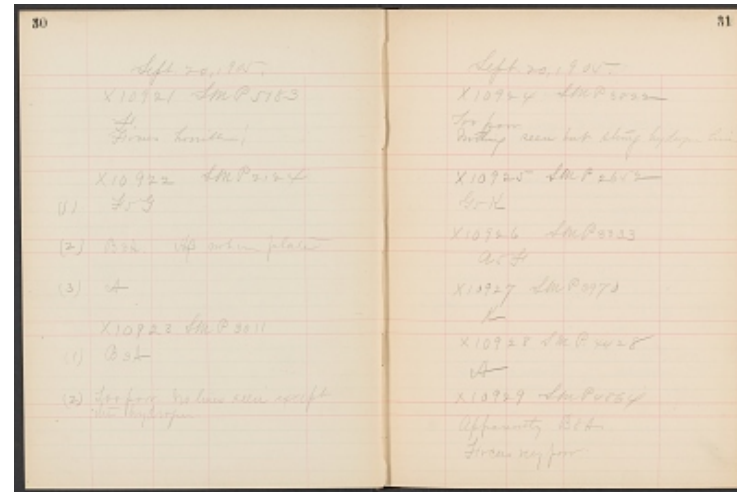 30
Sept. 20, 1905.
X10921 SMP5183
F
Focus
X10922 SMP2124
(1) F5G
(2) B3A
(3) A
X10923 SMP3011
(1) B3A
(2) Too poor. No lines seen except
the hydrogen
31
Sept. 20, 1905.
X10924
Too poor
Nothing seen but strong hydrogen lines
X10925 SMP2652
G5K
X10926 SMP3333
A5F
X10927 SMP
K
X10928 SMP4428
A
X10929 SMP4864
Apparently B8A
Focus very poor